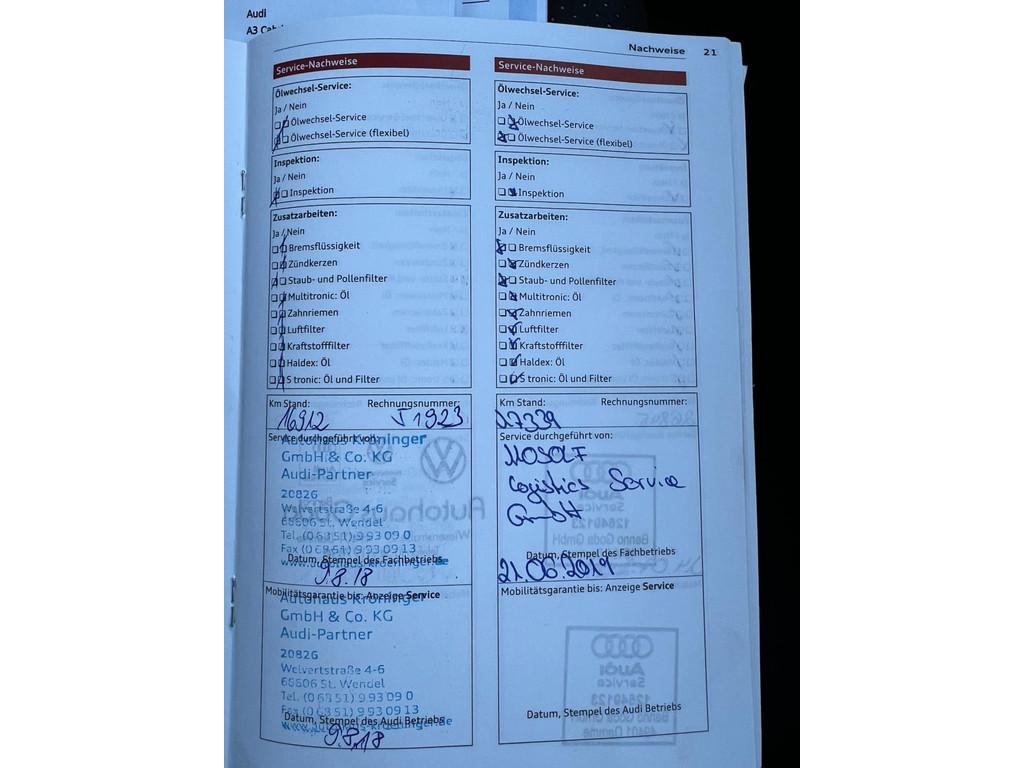 Audi
A3 Cab
Nachweise 21
Service-Nachweise
Ölwechsel-Service:
Ja / Nein
Ölwechsel-Service
Ölwechsel-Service (flexibel)
Inspektion:
Ja / Nein
Inspektion
Zusatzarbeiten:
Ja / Nein
Bremsflüssigkeit
Zündkerzen
Staub- und Pollenfilter
Multitronic: Öl
Zahnriemen
Luftfilter
Kraftstofffilter
Haldex: Öl
S tronic: Öl und Filter
Km Stand: Rechnungsnummer:
16912 J1923
Service durchgeführt von:
Autohaus Kröninger
GmbH & Co. KG
Audi-Partner
20826
Welvertstraße 4-6
66606 St. Wendel
Tel. (0 68 51) 9 93 09 0
Fax (0 68 51) 9 93 09 13
www.autohaus-kroeninger.de
Datum, Stempel des Fachbetriebs
9.8.18
Mobilitätsgarantie bis: Anzeige Service
Autohaus Kröninger
GmbH & Co. KG
Audi-Partner
20826
Welvertstraße 4-6
66606 St. Wendel
Tel. (0 68 51) 9 93 09 0
Fax (0 68 51) 9 93 09 13
www.autohaus-kroeninger.de
Datum, Stempel des Audi Betriebs
9.8.18
Service-Nachweise
Ölwechsel-Service:
Ja / Nein
Ölwechsel-Service
Ölwechsel-Service (flexibel)
Inspektion:
Ja / Nein
Inspektion
Zusatzarbeiten:
Ja / Nein
Bremsflüssigkeit
Zündkerzen
Staub- und Pollenfilter
Multitronic: Öl
Zahnriemen
Luftfilter
Kraftstofffilter
Haldex: Öl
S tronic: Öl und Filter
Km Stand: Rechnungsnummer:
27339
Service durchgeführt von:
MOSOLF
Logistics Service
GmbH
Datum, Stempel des Fachbetriebs
21.06.2019
Mobilitätsgarantie bis: Anzeige Service
Datum, Stempel des Audi Betriebs